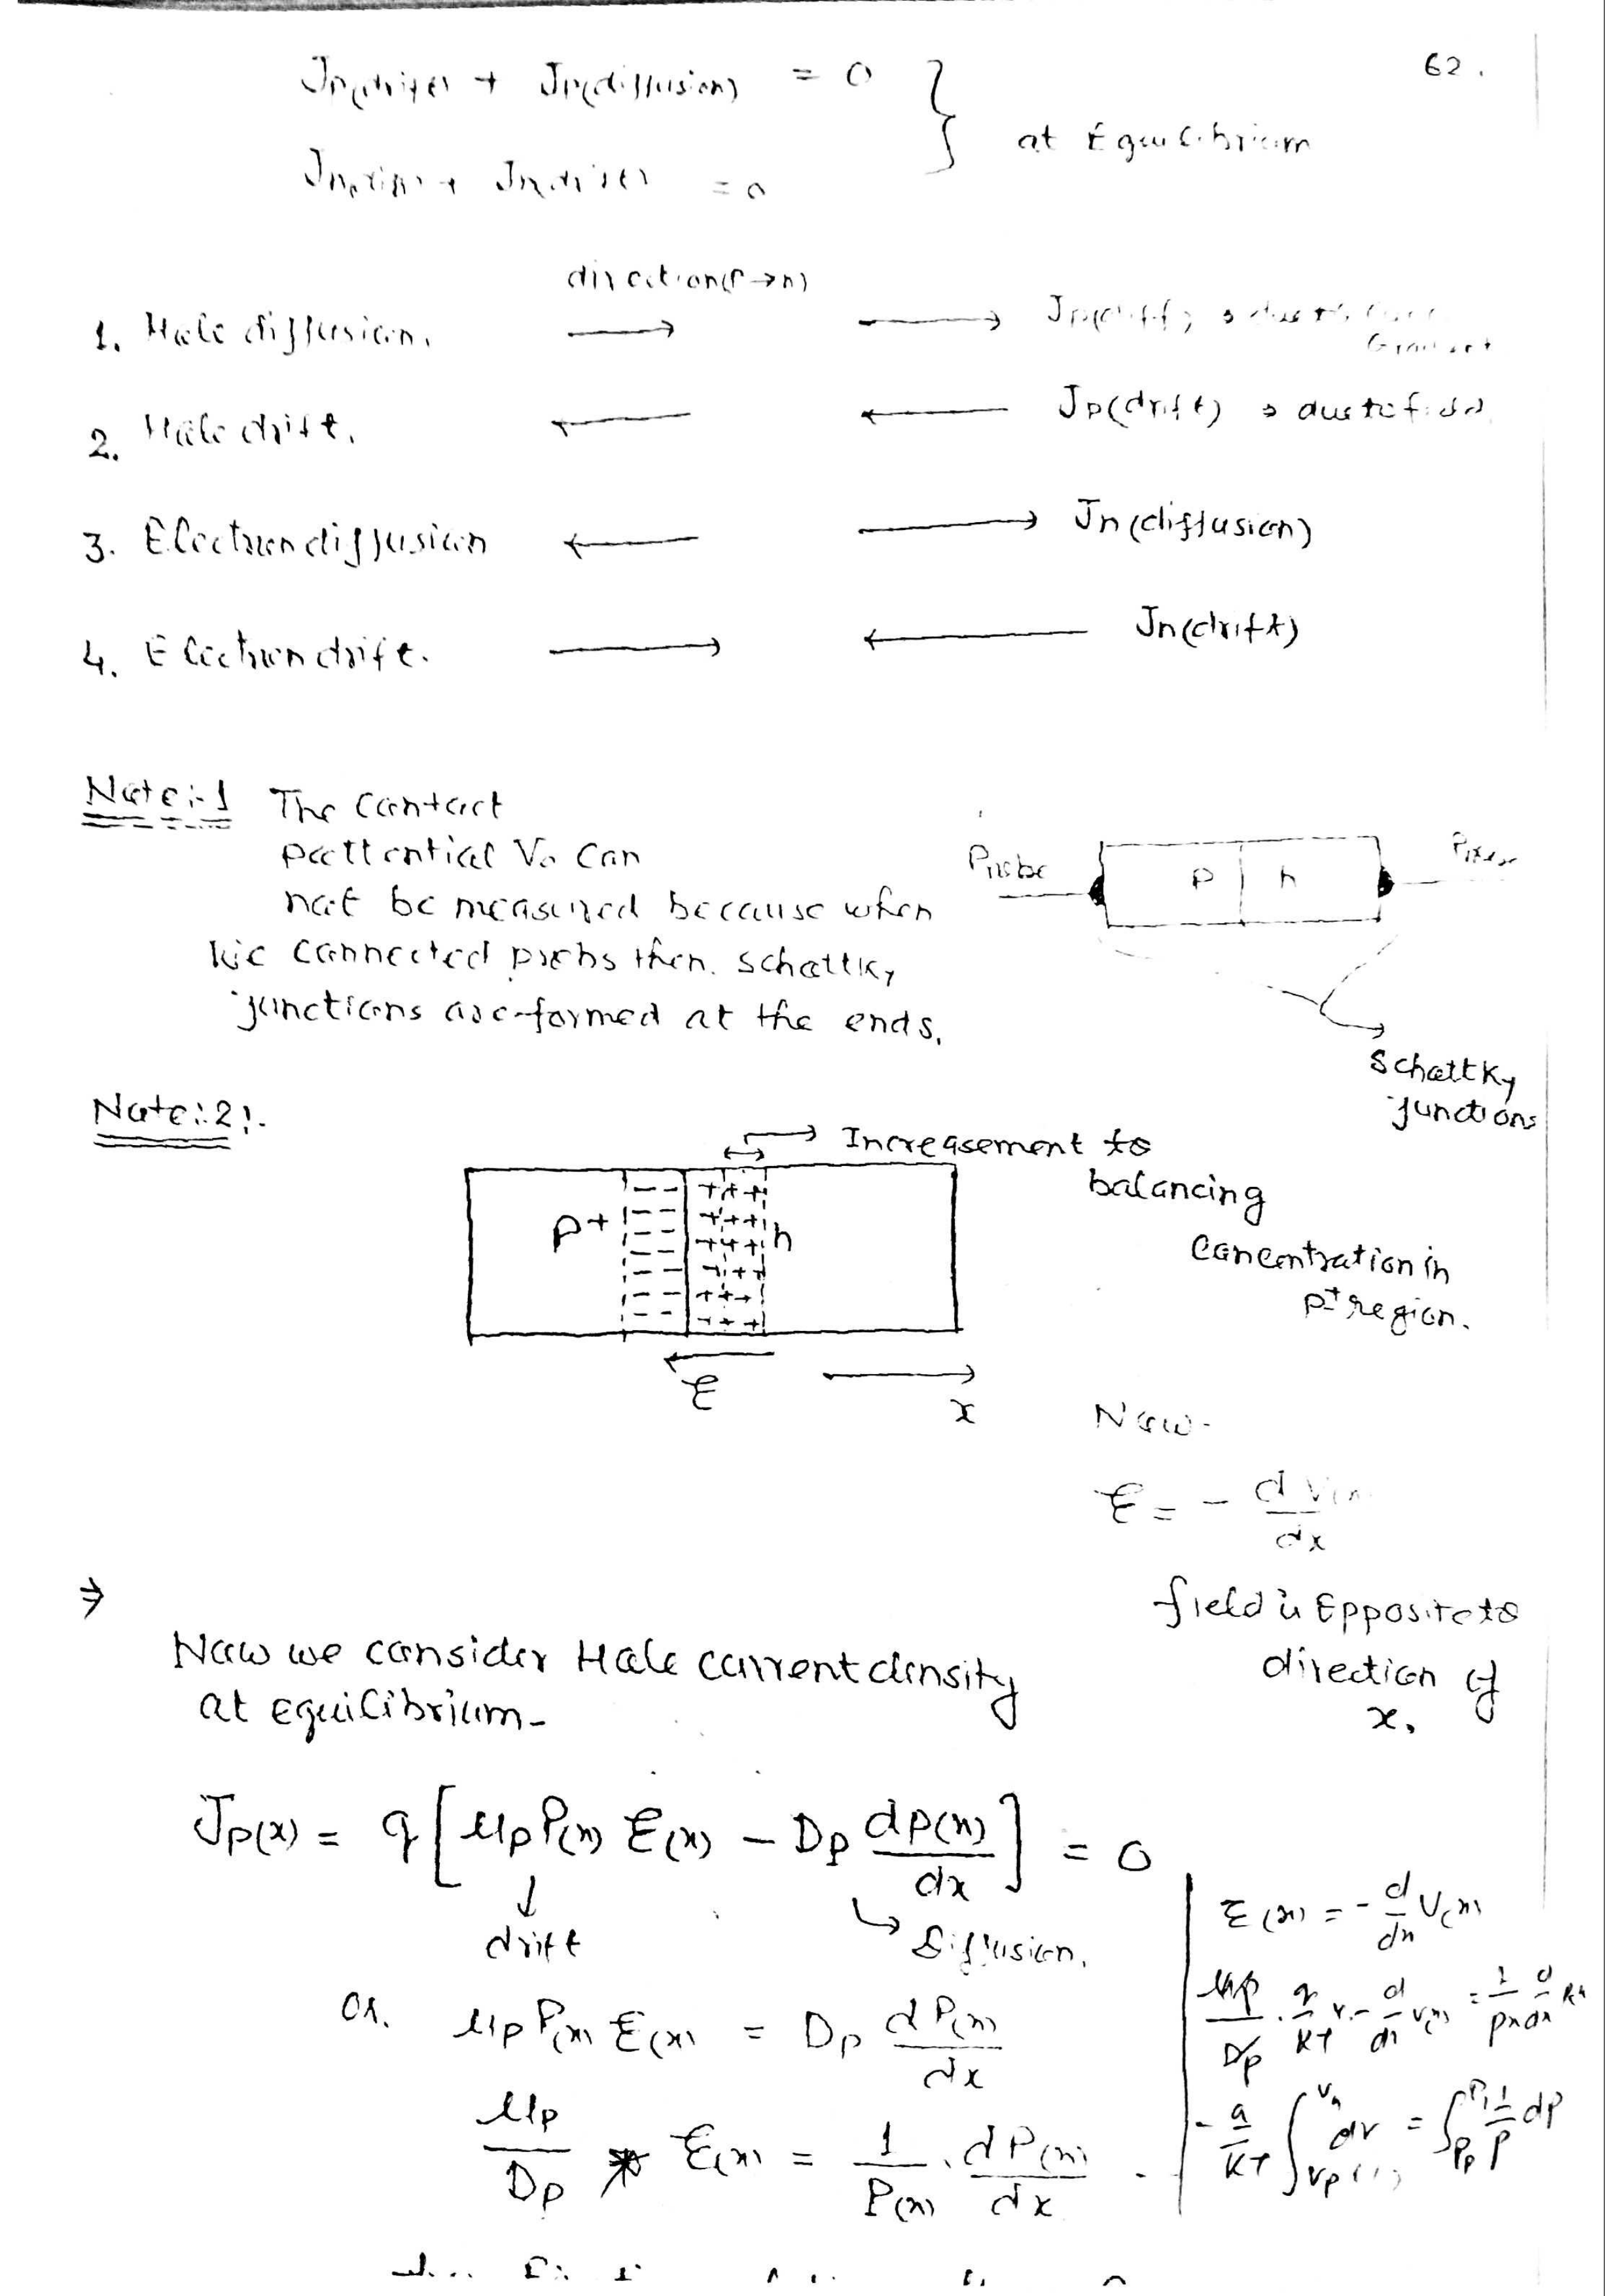 62.
Jp(drift) + Jp(diffusion) = 0 }
at Equilibrium
= 0
direction(P→n)
1. Hole diffusion. → → Jp(diff) → due to
Gradient
2. Hole drift. ← ← Jp(drift) → due to field
3. Electron diffusion ← → Jn(diffusion)
4. Electron drift. → ← Jn(drift)
Note:-1 The Contact
pottential Vo Can
not be measured because when
we connected probs then. schottky
junctions are formed at the ends.
Probe P n
Schottky
junctions
Note:2:-
→ Increasement to
balancing
Concentration in
P+ region.
P+ n
ℰ
x
Now-
ℰ = - dV(x) / dx
field is Epposite to
direction of
x.
⇒
Now we consider Hole current density
at equilibrium-
Jp(x) = q [ μp P(x) ℰ(x) - Dp dP(x)/dx ] = 0
↓ drift
↳ Diffusion.
or. μp P(x) ℰ(x) = Dp dP(x)/dx
μp/Dp ℰ(x) = 1/P(x) . dP(x)/dx
ℰ(x) = - d/dx V(x)
μp/Dp . q/KT - d/dx V(x) = 1/px d/dx
- q/KT ∫ dv = ∫ 1/p dp